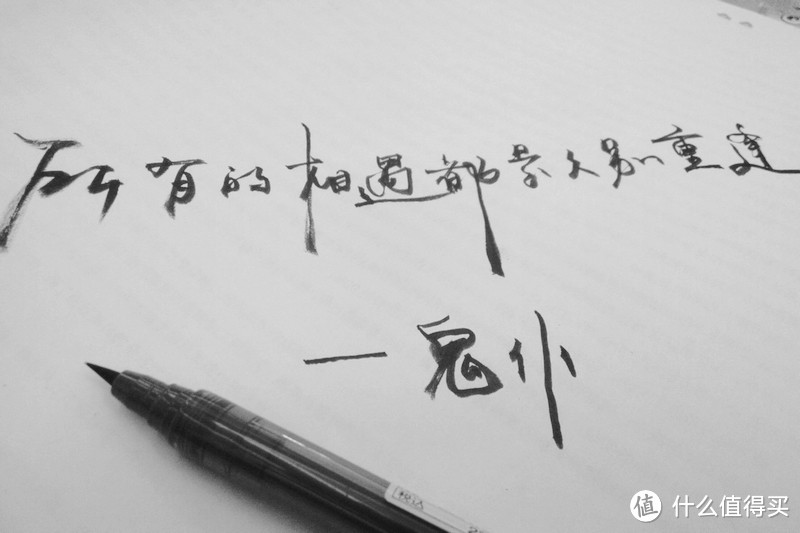 所有的相遇都是久别重逢
一鬼仆
值 什么值得买